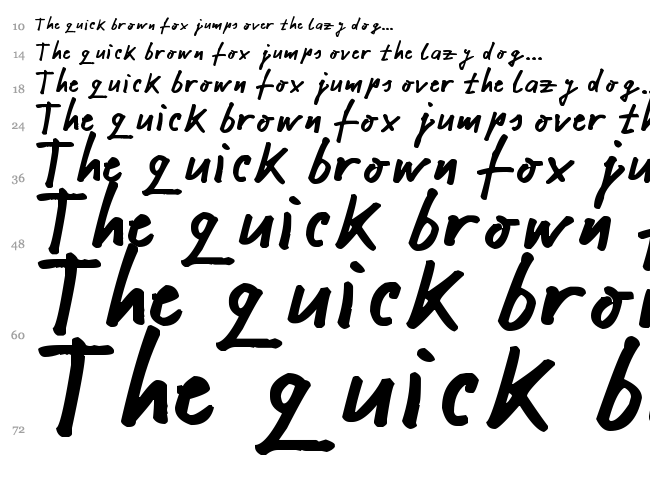 10 The quick brown fox jumps over the lazy dog...
14 The quick brown fox jumps over the lazy dog...
18 The quick brown fox jumps over the lazy dog.
24 The quick brown fox jumps over th
36 The quick brown fox ju
48 The quick brown
60 The quick bro
72 The quick b